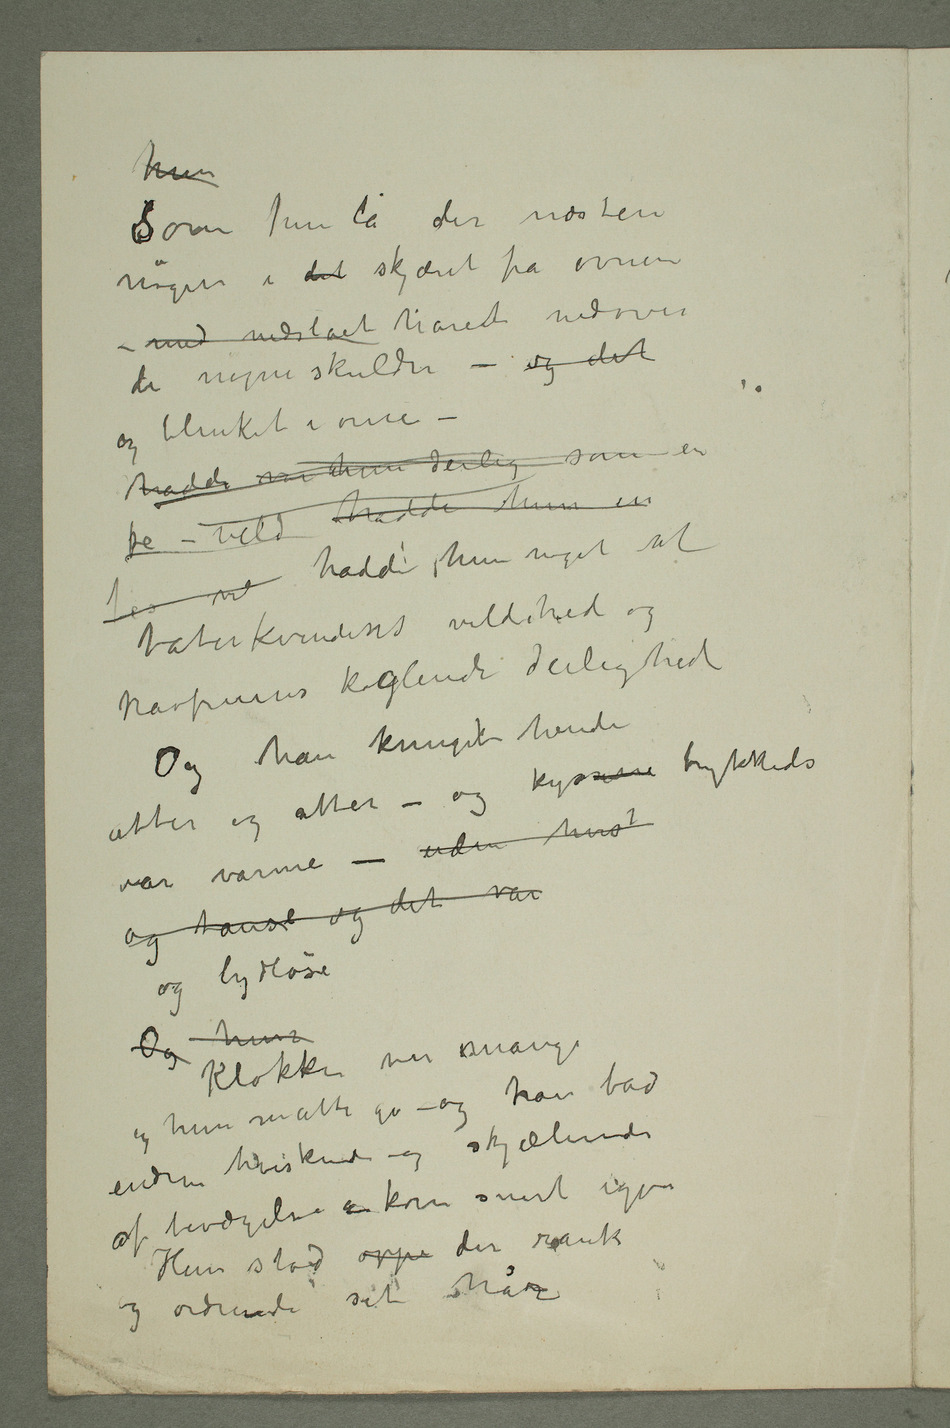 hun
Som hun lå der næsten
nøgen i det skjæret fra ovnen
– med nedslaet håret nedover
de nøgne skuldre – og det
og blinket i ovne –
hadde var hun deilig som en
fe – vild hadde hun en
hadde hun noget af
taterkvindens vildhed og
havfruens koglende deilighed
Og han knuget hende
atter og atter – og kyssene trykkeds
var varme – uden hvist
og tause og det var
og lydløse
Og hun
Klokken var mange
og hun måtte gå – og han bad
endnu hviskende og skjælvende
af bevægelse a kom snart igjen
Hun stod oppe der rank
og ordnende sit hår